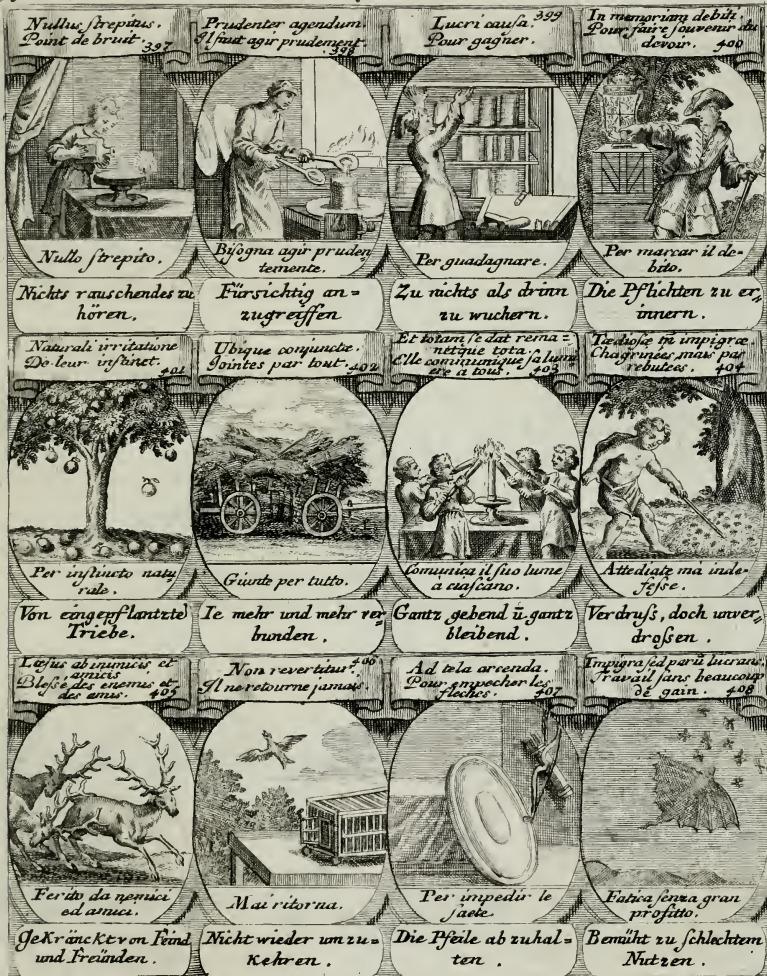 Nullus strepitus.
Point de bruit. 397
Nullo strepito.
Nichts rauschendes zu
hören.
Prudenter agendum.
Il faut agir prudement. 398
Bisogna agir pruden
temente.
Fürsichtig an=
zugreiffen
Lucri causa. 399
Pour gagner.
Per guadagnare.
Zu nichts als drinn
zu wuchern.
In memoriam debiti.
Pour faire souvenir du
devoir. 400
Per marcar il de-
bito.
Die Pflichten zu er=
innern.
Naturali irritatione
De leur instinct.
401
Per instincto natu
rale.
Von eingepflantzte
Triebe.
Ubique conjunctæ.
Jointes par tout. 402
Giunte per tutto.
Ie mehr und mehr ver=
bunden.
Et totam se dat rema=
netque tota.
Elle communique sa lumi
ere a tous. 403
Comunica il suo lume
à ciascano.
Gantz gebend ū. gantz
bleibend.
Tædiosæ impigræ.
Chagrinées, mais pas
rebutées. 404
Attediate mà inde-
fesse.
Verdruss, doch unver=
drossen.
Læsus ab inimicis et
amicis
Blessé des enemis et
des amis. 405
Ferito da nemici
ed amici.
Gekränckt von Feind
und Freünden.
Non revertitur. 406
Il ne retourne jamais.
Mai ritorna.
Nicht wieder um zu=
kehren.
Ad tela arcenda.
Pour empecher les
fleches. 407
Per impedir le
saete
Die Pfeile ab zuhal=
ten.
Impigra sed parū lucrans.
Travail sans beaucoup
de gain. 408
Fatica senza gran
profitto.
Bemüht zu schlechtem
Nutzen.